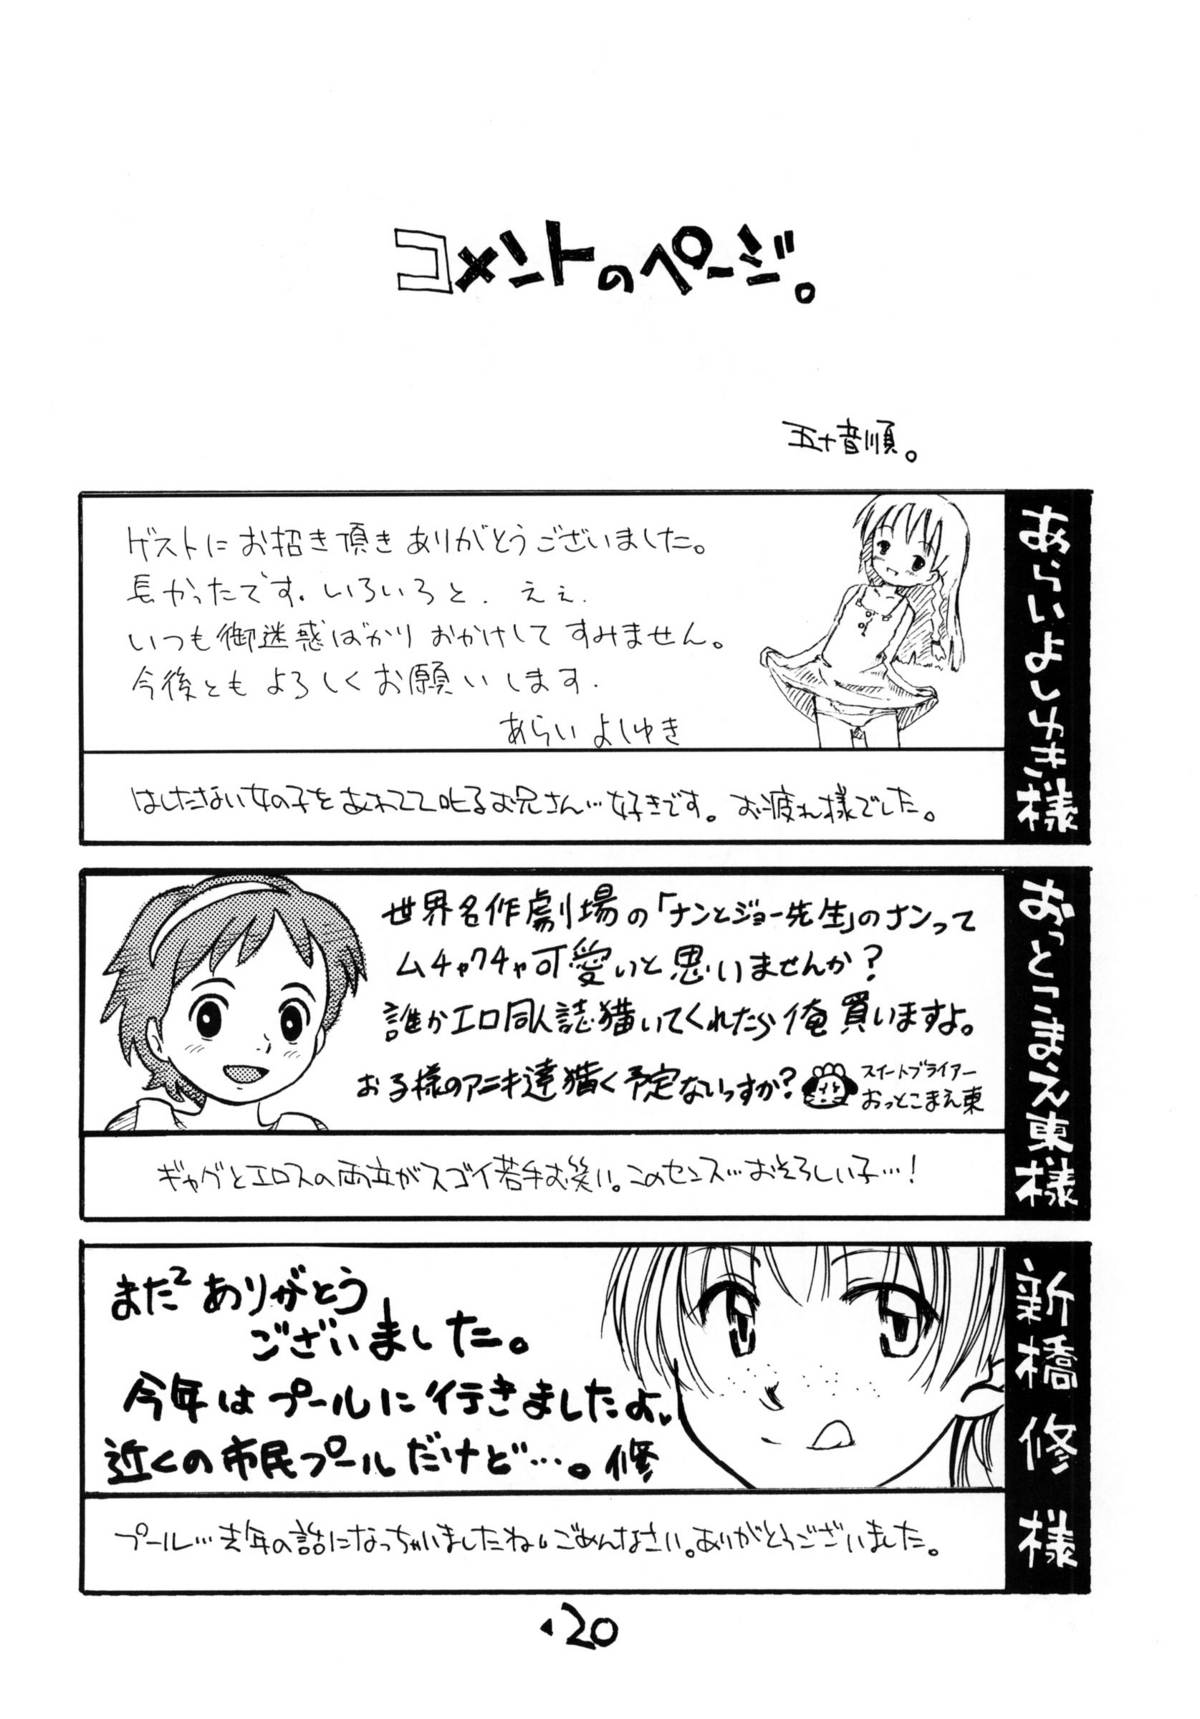 コメントのページ。
五十音順。
あらいよしゆき様
ゲストにお招き頂きありがとうございました。
長かったです。いろいろと、ええ。
いつも御迷惑ばかりおかけしてすみません。
今後ともよろしくお願いします.
あらいよしゆき
はしたない女の子をあわてて叱るお兄さん…好きです。お疲れ様でした。
おっとこまえ東様
世界名作劇場の「ナンとジョー先生」のナンって
ムチャクチャ可愛いと思いませんか?
誰かエロ同人誌描いてくれたら俺買いますよ。
お子様のアニキ達描く予定ないっすか?
スイートブライアー
おっとこまえ東
ギャグとエロスの両立がスゴイ若手お笑い。このセンス…おそろしい子…!
新橋修様
また²ありがとう
ございました。
今年はプールに行きましたよ、
近くの市民プールだけど…。修
プール…去年の話になっちゃいましたね。ごめんなさい。ありがとうございました。
20